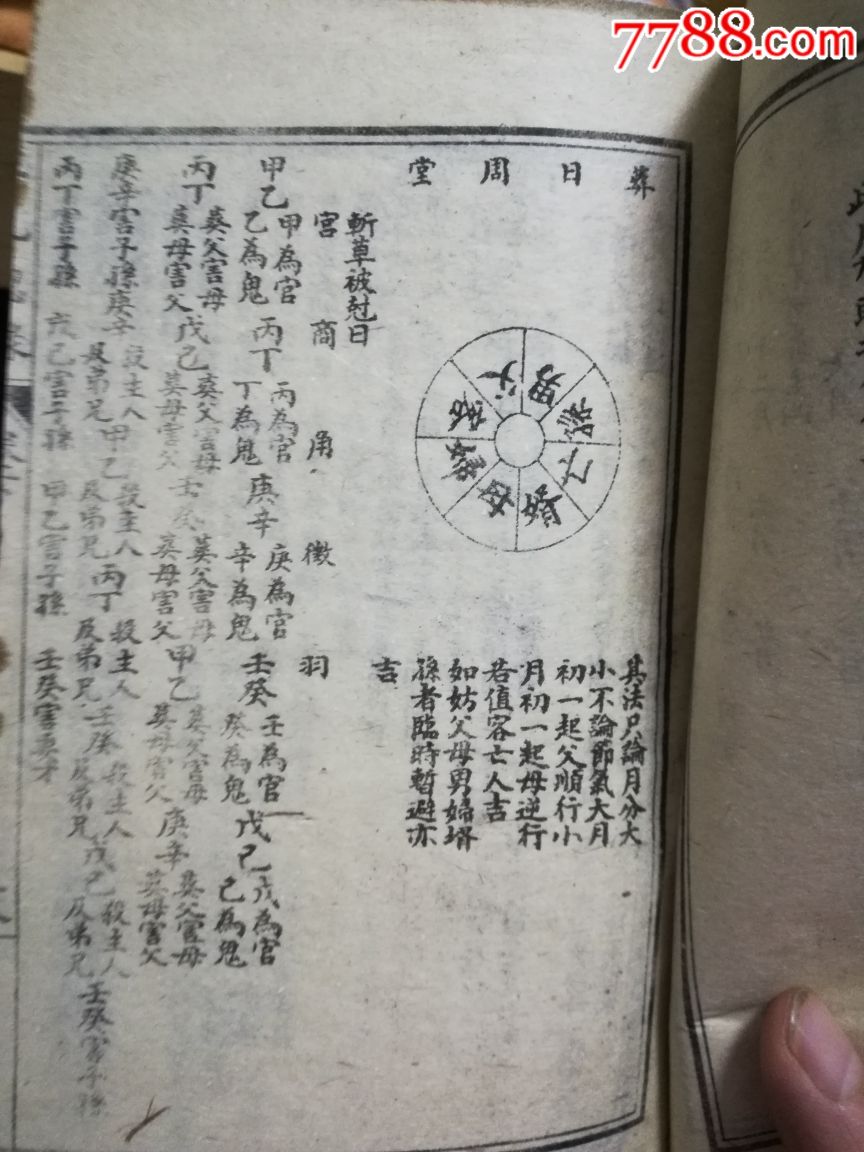 7788.com
葬日周堂
父
男
孫
亡
婦
母
客
姑
其法只論月分大
小不論節氣大月
初一起父順行小
月初一起母逆行
若值客亡人吉
如姑父母男婦壻
孫者臨時暫避亦
吉
斬草被尅日
宮 商 角 徵 羽
甲乙 甲為官 乙為鬼 丙丁 丙為官 丁為鬼 庚辛 庚為官 辛為鬼 壬癸 壬為官 癸為鬼 戊己 戊為官 己為鬼
丙丁 葬父害母 葬母害父 戊己 葬父害母 葬母害父 壬癸 葬父害母 葬母害父 甲乙 葬父害母 葬母害父 庚辛 葬父害母 葬母害父
庚辛害子孫 庚辛 殺主人 及弟兄 甲乙 殺主人 及弟兄 丙丁 殺主人 及弟兄 壬癸 殺主人 及弟兄 戊己 殺主人 及弟兄 壬癸害子孫
丙丁害子孫 戊己害子孫 甲乙害子孫 壬癸害